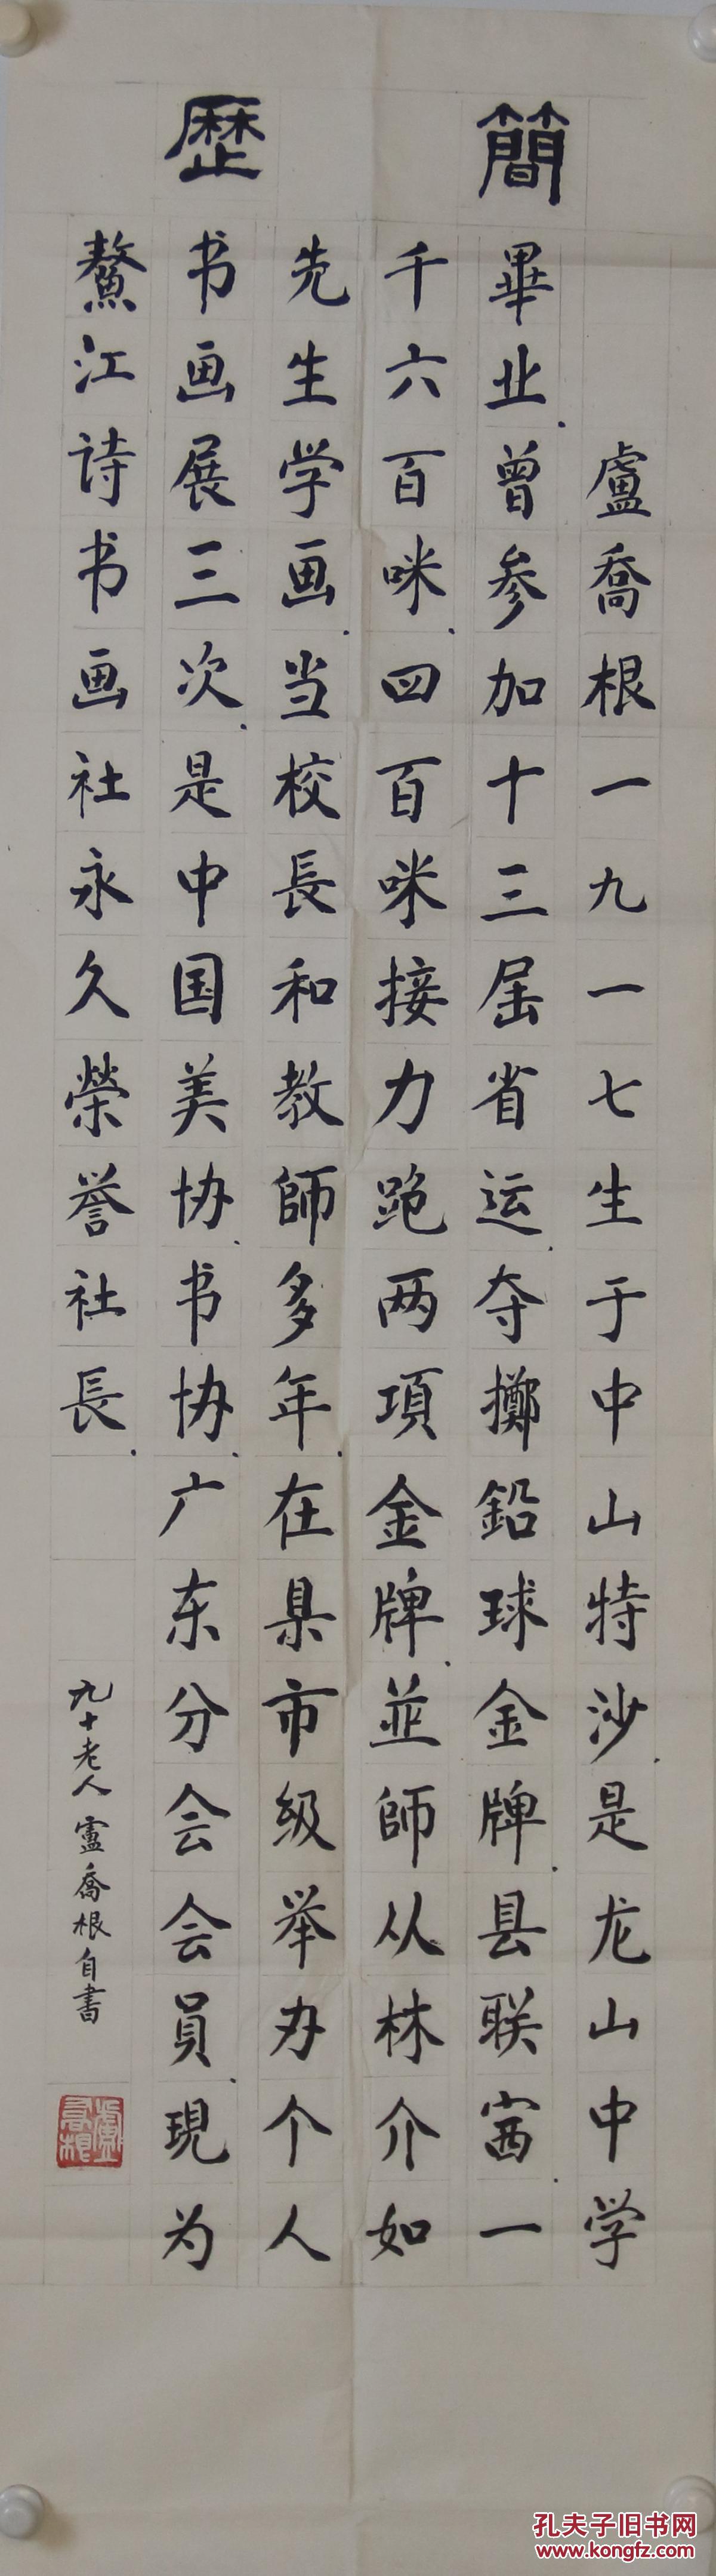 簡歷
盧喬根一九一七生于中山特沙.是龙山中学
畢业.曾参加十三届省运.夺掷鉛球金牌.县联赛.一
千六百咪.四百咪接力跑两項金牌.並師从林介如
先生学画.当校長和教師多年.在県市级举办个人
书画展三次.是中国美协.书协.广东分会会員.現为
鰲江诗书画社永久榮誉社長.
九十老人盧喬根自書
孔夫子旧书网
www.kongfz.com